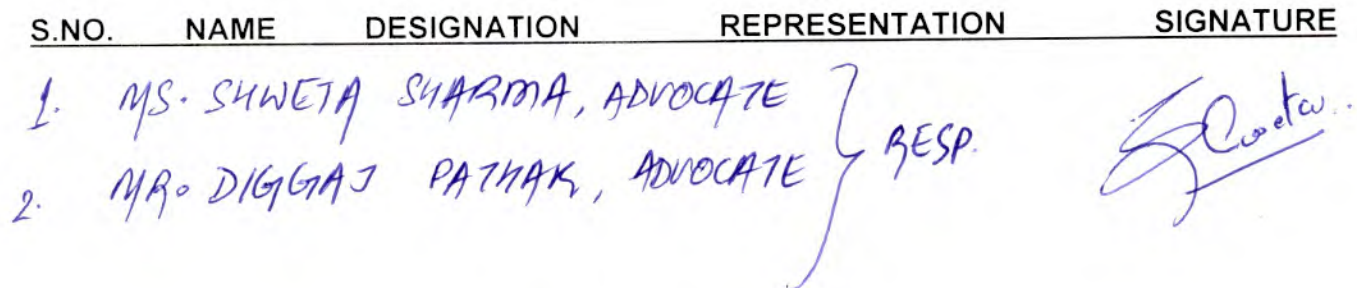 S.NO. NAME DESIGNATION REPRESENTATION SIGNATURE
1. MS. SHWETA SHARMA, ADVOCATE
RESP.
2. MR. DIGGAJ PATHAK, ADVOCATE